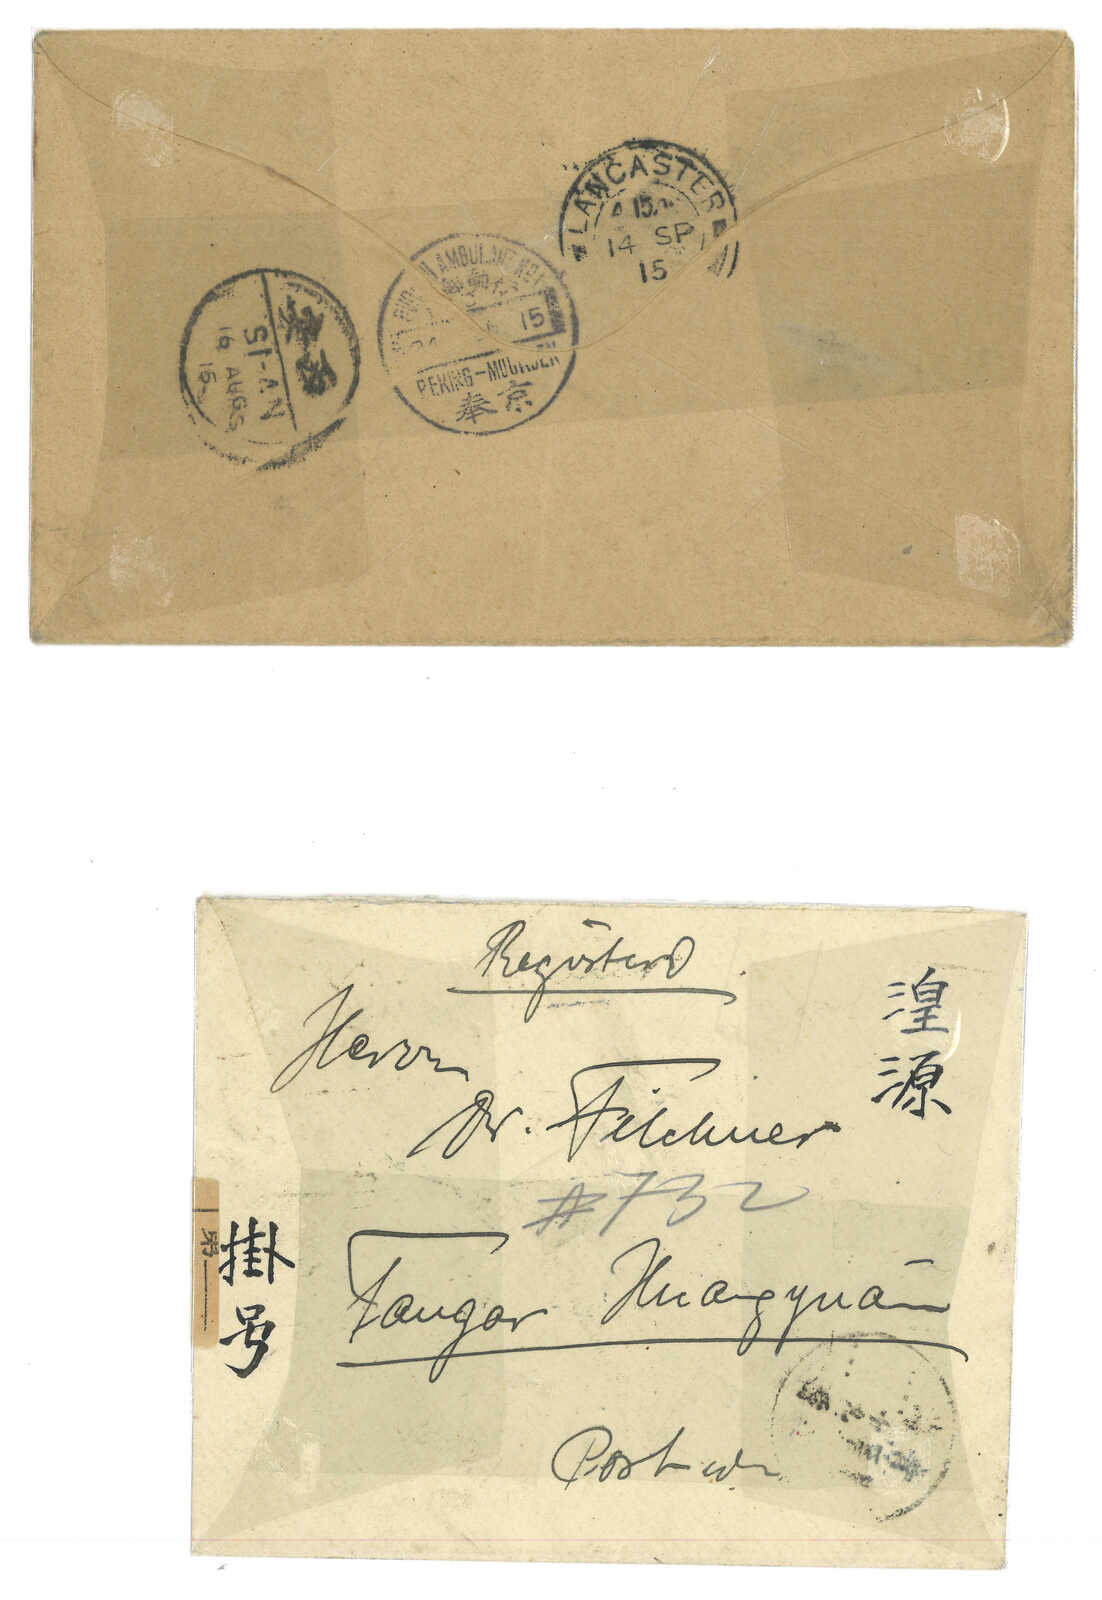 LANCASTER
4 15
14 SP
15
AMBUL
15
PEKING-MOUKDEN
京奉
SI-AN
16 AUG
15
Registered
Herrn
Dr. Filchner
#732
Tangar Huangyuan
湟源
掛号
第